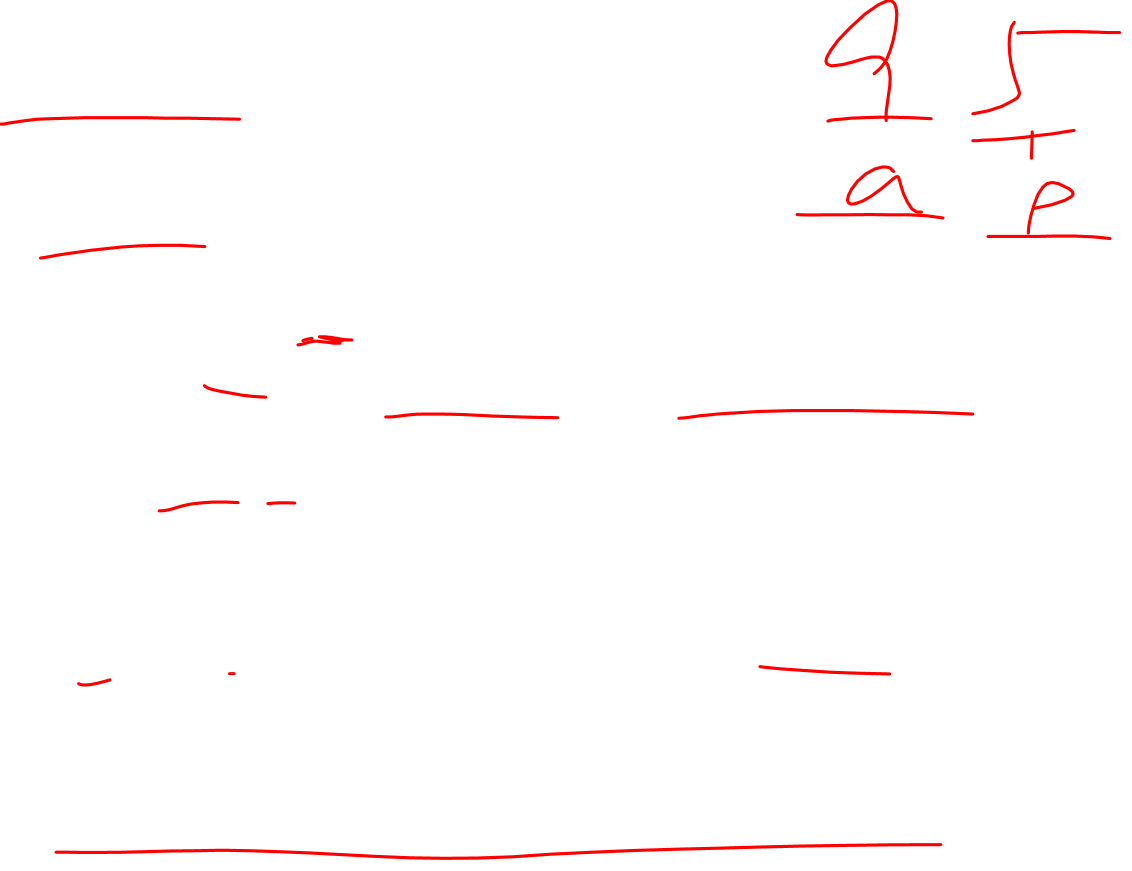 9 5
+
a p